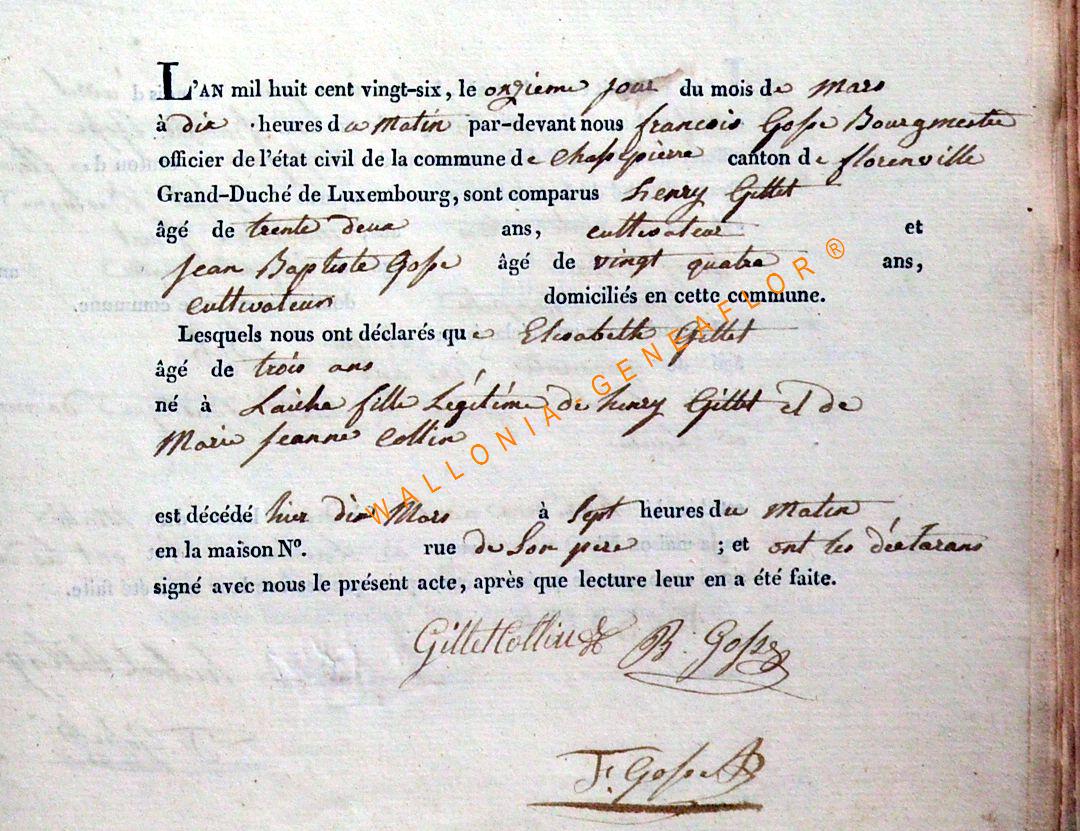 L'AN mil huit cent vingt-six, le onzieme jour du mois de Mars
à dix heures du Matin par-devant nous francois Gosse Bourgmestre
officier de l'état civil de la commune de Chassepierre canton de florenville
Grand-Duché de Luxembourg, sont comparus henry Gillet
âgé de trente deux ans, cultivateur et
Jean Baptiste Gosse âgé de vingt quatre ans,
cultivateur domiciliés en cette commune.
Lesquels nous ont déclarés que Elisabeth Gillet
âgé de trois ans
né à Laiche fille Légitime de henry Gillet et de
Marie Jeanne Collin
est décédé hier dix Mars à Sept heures du Matin
en la maison N°. rue de Son pere ; et ont les déclarans
signé avec nous le présent acte, après que lecture leur en a été faite.
Gillet Collin B. Gosse
F. Gosse
WALLONIA-GENEAFLOR ®